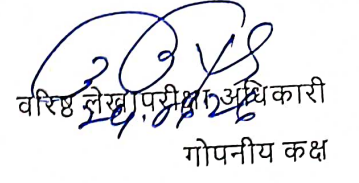 वरिष्ठ लेखापरीक्षा अधिकारी
गोपनीय कक्ष